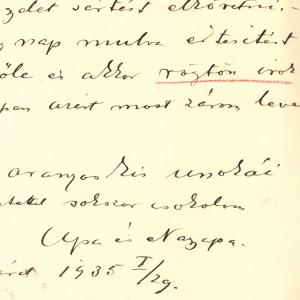 sértést elkövetni.
nap mulva értesítést
őle és akkor rögtön irok
pan azért most zárom leve
aranyos kis unokái
sokszor csokolom
Apa és Nagyapa.
1935 I/29.